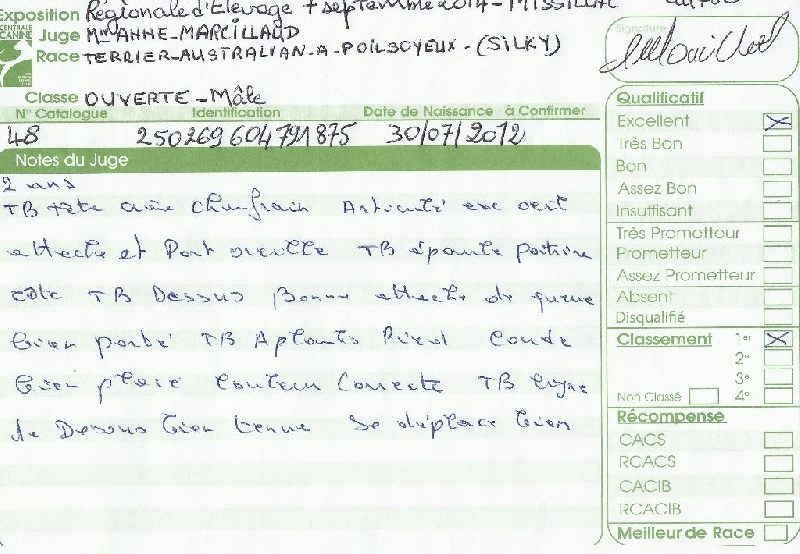 Exposition Régionale d'Elevage 7 septembre 2014 - MISSILLAC
CENTRALE CANINE
Juge Mme ANNE-MARCILLAUD
Race TERRIER-AUSTRALIAN-A-POILSOYEUX-(SILKY)
Classe OUVERTE - Mâle
N° Catalogue Identification Date de Naissance à Confirmer
48 250269604791875 30/07/2012
Notes du Juge
2 ans
TB tête crâne chanfrein Articulé exc oeil
attache et Port oreille TB épaule poitrine
côte TB Dessus Bonne attache de queue
bien porté TB Aplombs Pied Coude
bien placé Couleur Correcte TB ligne
de Dessus bien tenue se déplace bien
Signature
Qualificatif
Excellent
Très Bon
Bon
Assez Bon
Insuffisant
Très Prometteur
Prometteur
Assez Prometteur
Absent
Disqualifié
Classement 1er
2e
3e
Non Classé 4e
Récompense
CACS
RCACS
CACIB
RCACIB
Meilleur de Race